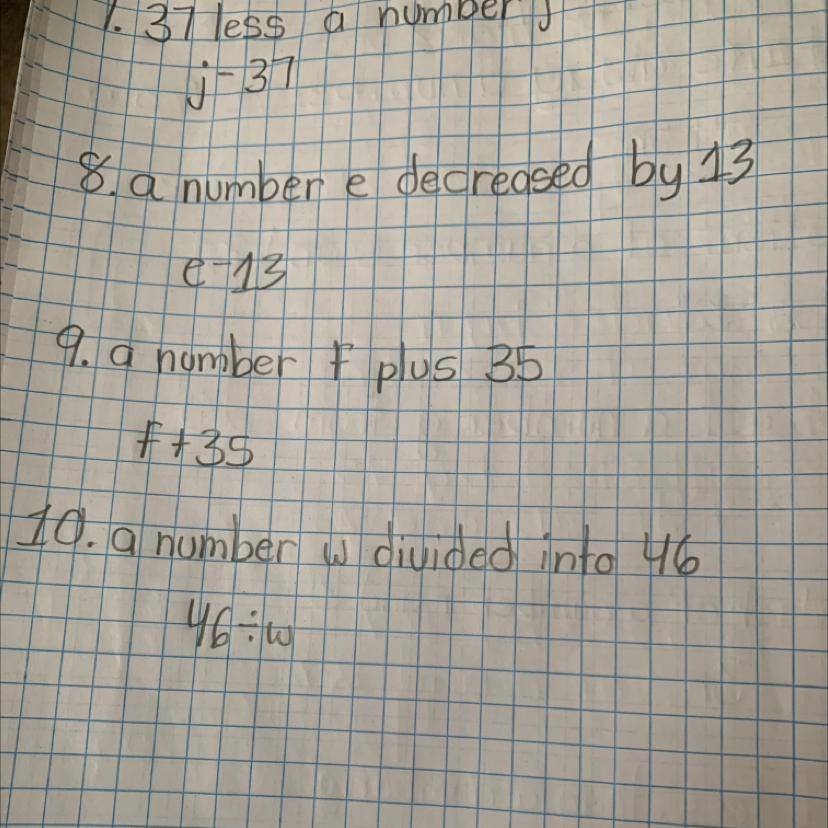 7. 37 less a number j
j-37
8. a number e decreased by 13
e-13
9. a number f plus 35
f+35
10. a number w divided into 46
46÷w